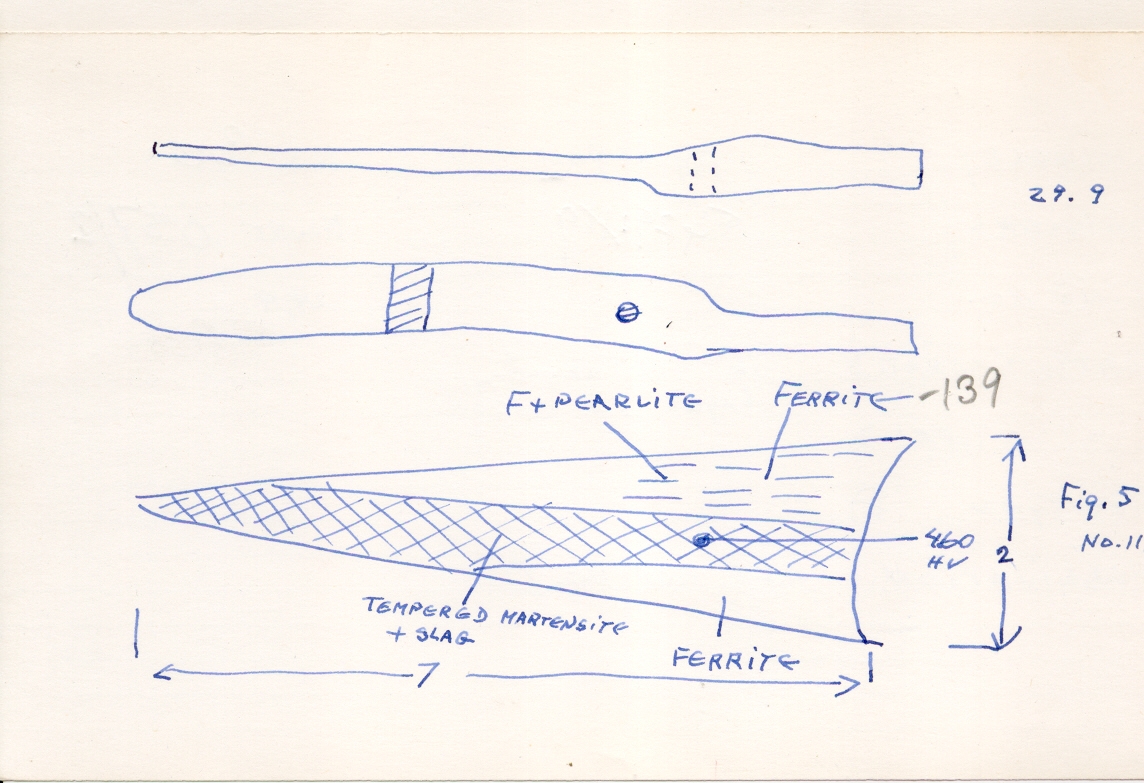 29.9
F+PEARLITE
FERRITE -139
Fig. 5
No. 11
460
HV
2
TEMPERED MARTENSITE
+ SLAG
FERRITE
7